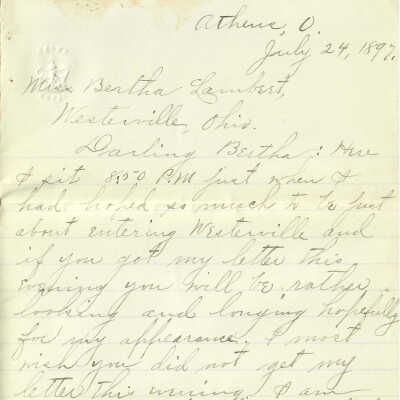 Athens, O.
July 24, 1897.
Miss Bertha Lambert,
Westerville, Ohio.
Darling Bertha: Here
I sit 8:50 P.M just when I
had hoped so much to be just
about entering Westerville and
if you got my letter this
evening you will be rather
looking and longing hopefully
for my appearance. I most
wish you did not get my
letter this evening. I am